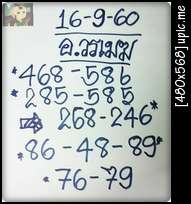 16-9-60
อ.วรเมฆ
*468-586
*285-585
⇨ 268-246*
*86-48-89*
*76-79
[480x568]upic.me